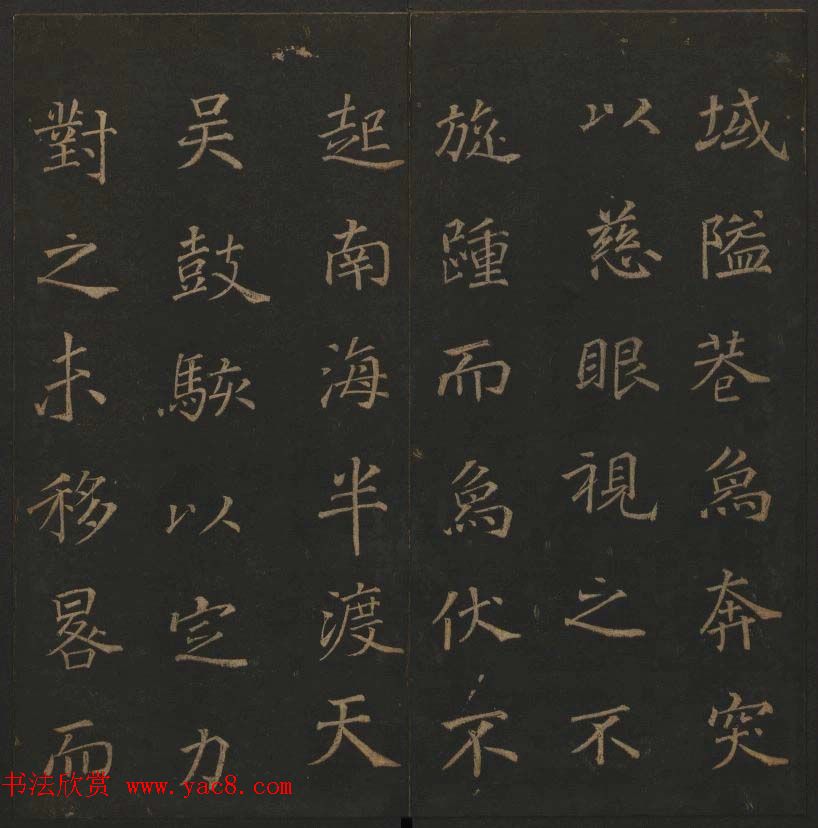 域隘巷爲奔突
以慈眼視之不
旋踵而爲伏不
起南海半渡天
吴鼓駭以定力
對之未移晷而
书法欣赏 www.yac8.com